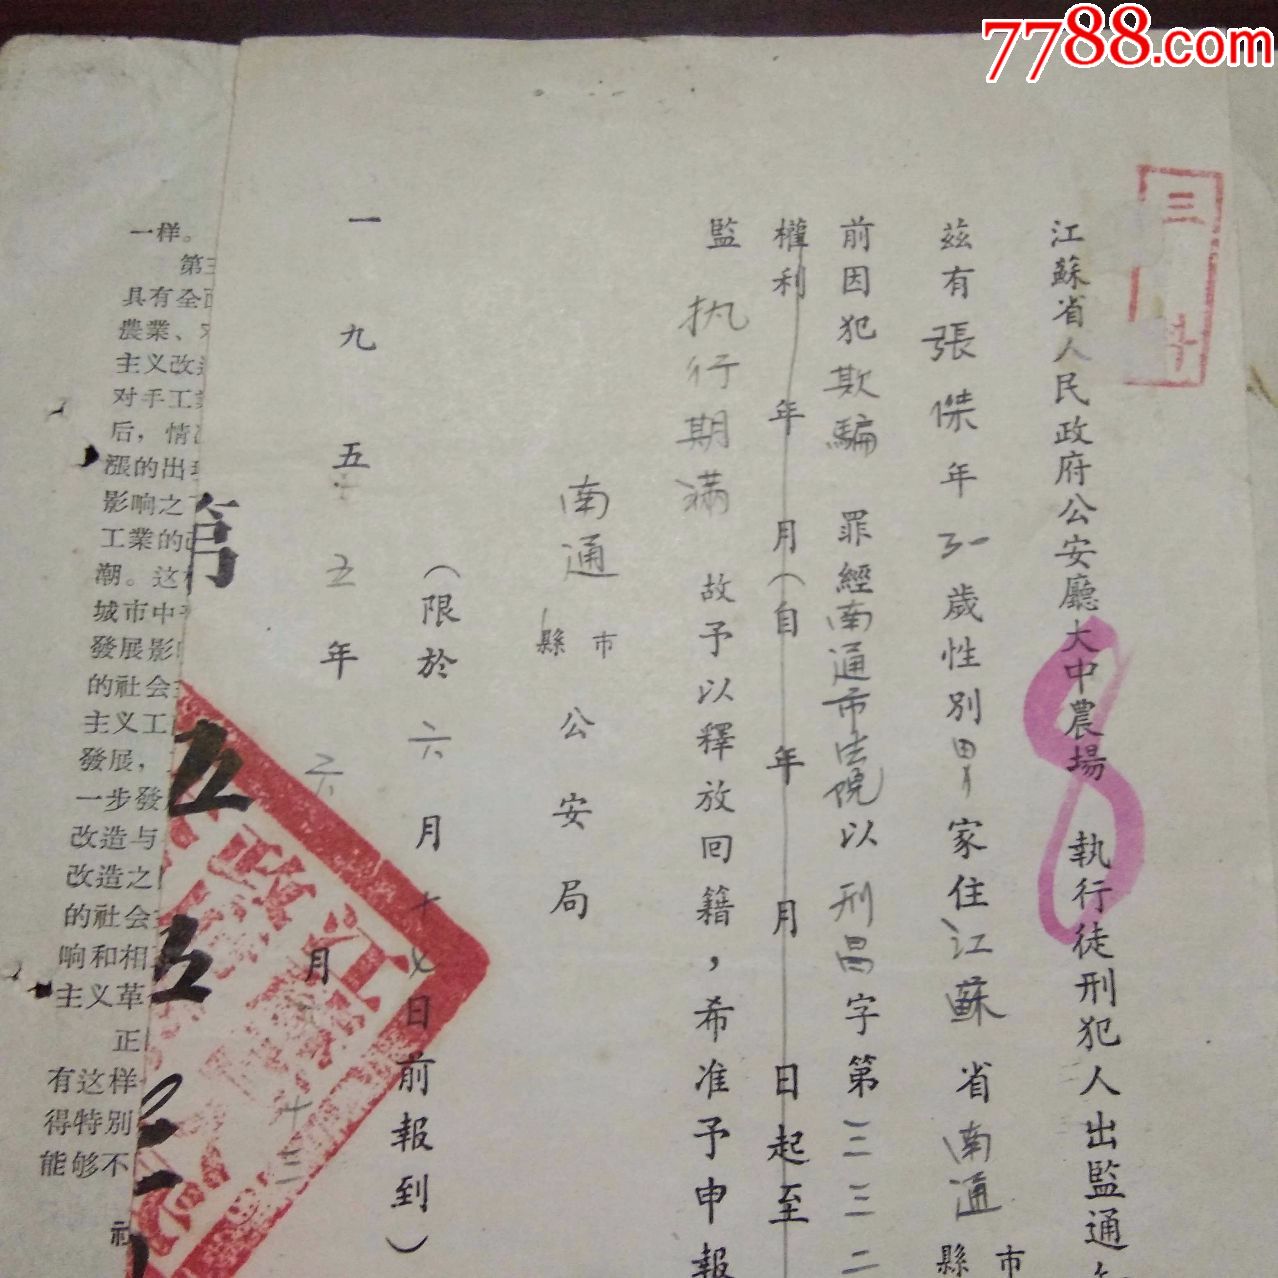 7788.com
三
江蘇省人民政府公安廳大中農場 執行徒刑犯人出監通
茲有張傑年 歲性別男家住江蘇省南通縣市
前因犯欺騙罪經南通市法院以刑昌字第三三二
權利 年 月(自 年 月 日起至
監 执行期滿 故予以釋放回籍,希准予申報
南通縣市公安局
(限於六月十七日前報到)
一九五五年六月 十三
8
一样。
第三
具有全面
農業、
主义改造
对手工業
后,情况
漲的出現
影响之下
工業的改
潮。这
城市中
發展影响
的社会主
主义工
發展,
一步發
改造与
改造之
的社会主
响和相互
主义革
正
有这样
得特別
能够不
社
五
五